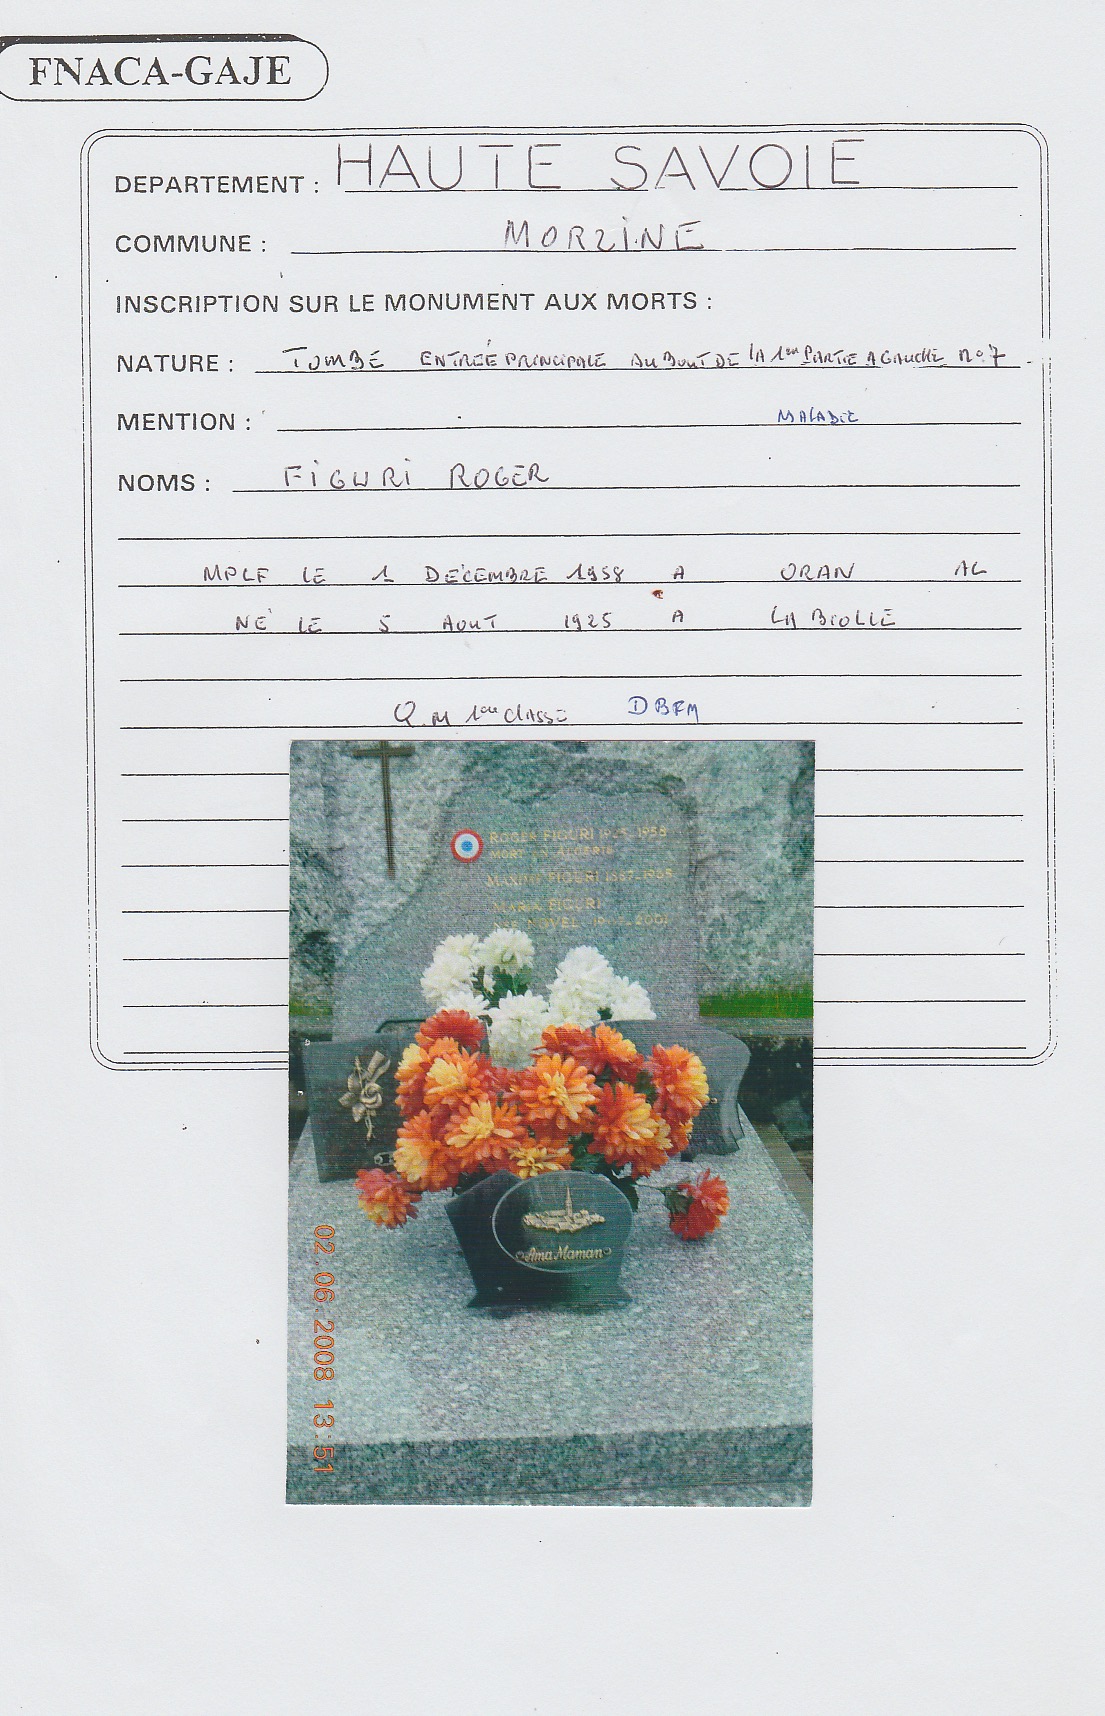 FNACA-GAJE
DEPARTEMENT : HAUTE SAVOIE
COMMUNE : MORZINE
INSCRIPTION SUR LE MONUMENT AUX MORTS :
NATURE : TOMBE ENTRÉE PRINCIPALE AU BOUT DE LA 1ere PARTIE A GAUCHE no 7
MENTION : MALADIE
NOMS : FIGURI ROGER
MPLF LE 1 DECEMBRE 1958 A ORAN AL
NE LE 5 AOUT 1925 A LA BIOLLE
Q.M 1ere classe DBFM
ROGER FIGURI 1925-1958
MORT EN ALGERIE
FIGURI 1887-1965
MARIA FIGURI
NEE NOVEL 2001
A ma Maman
02.06.2008 13:51